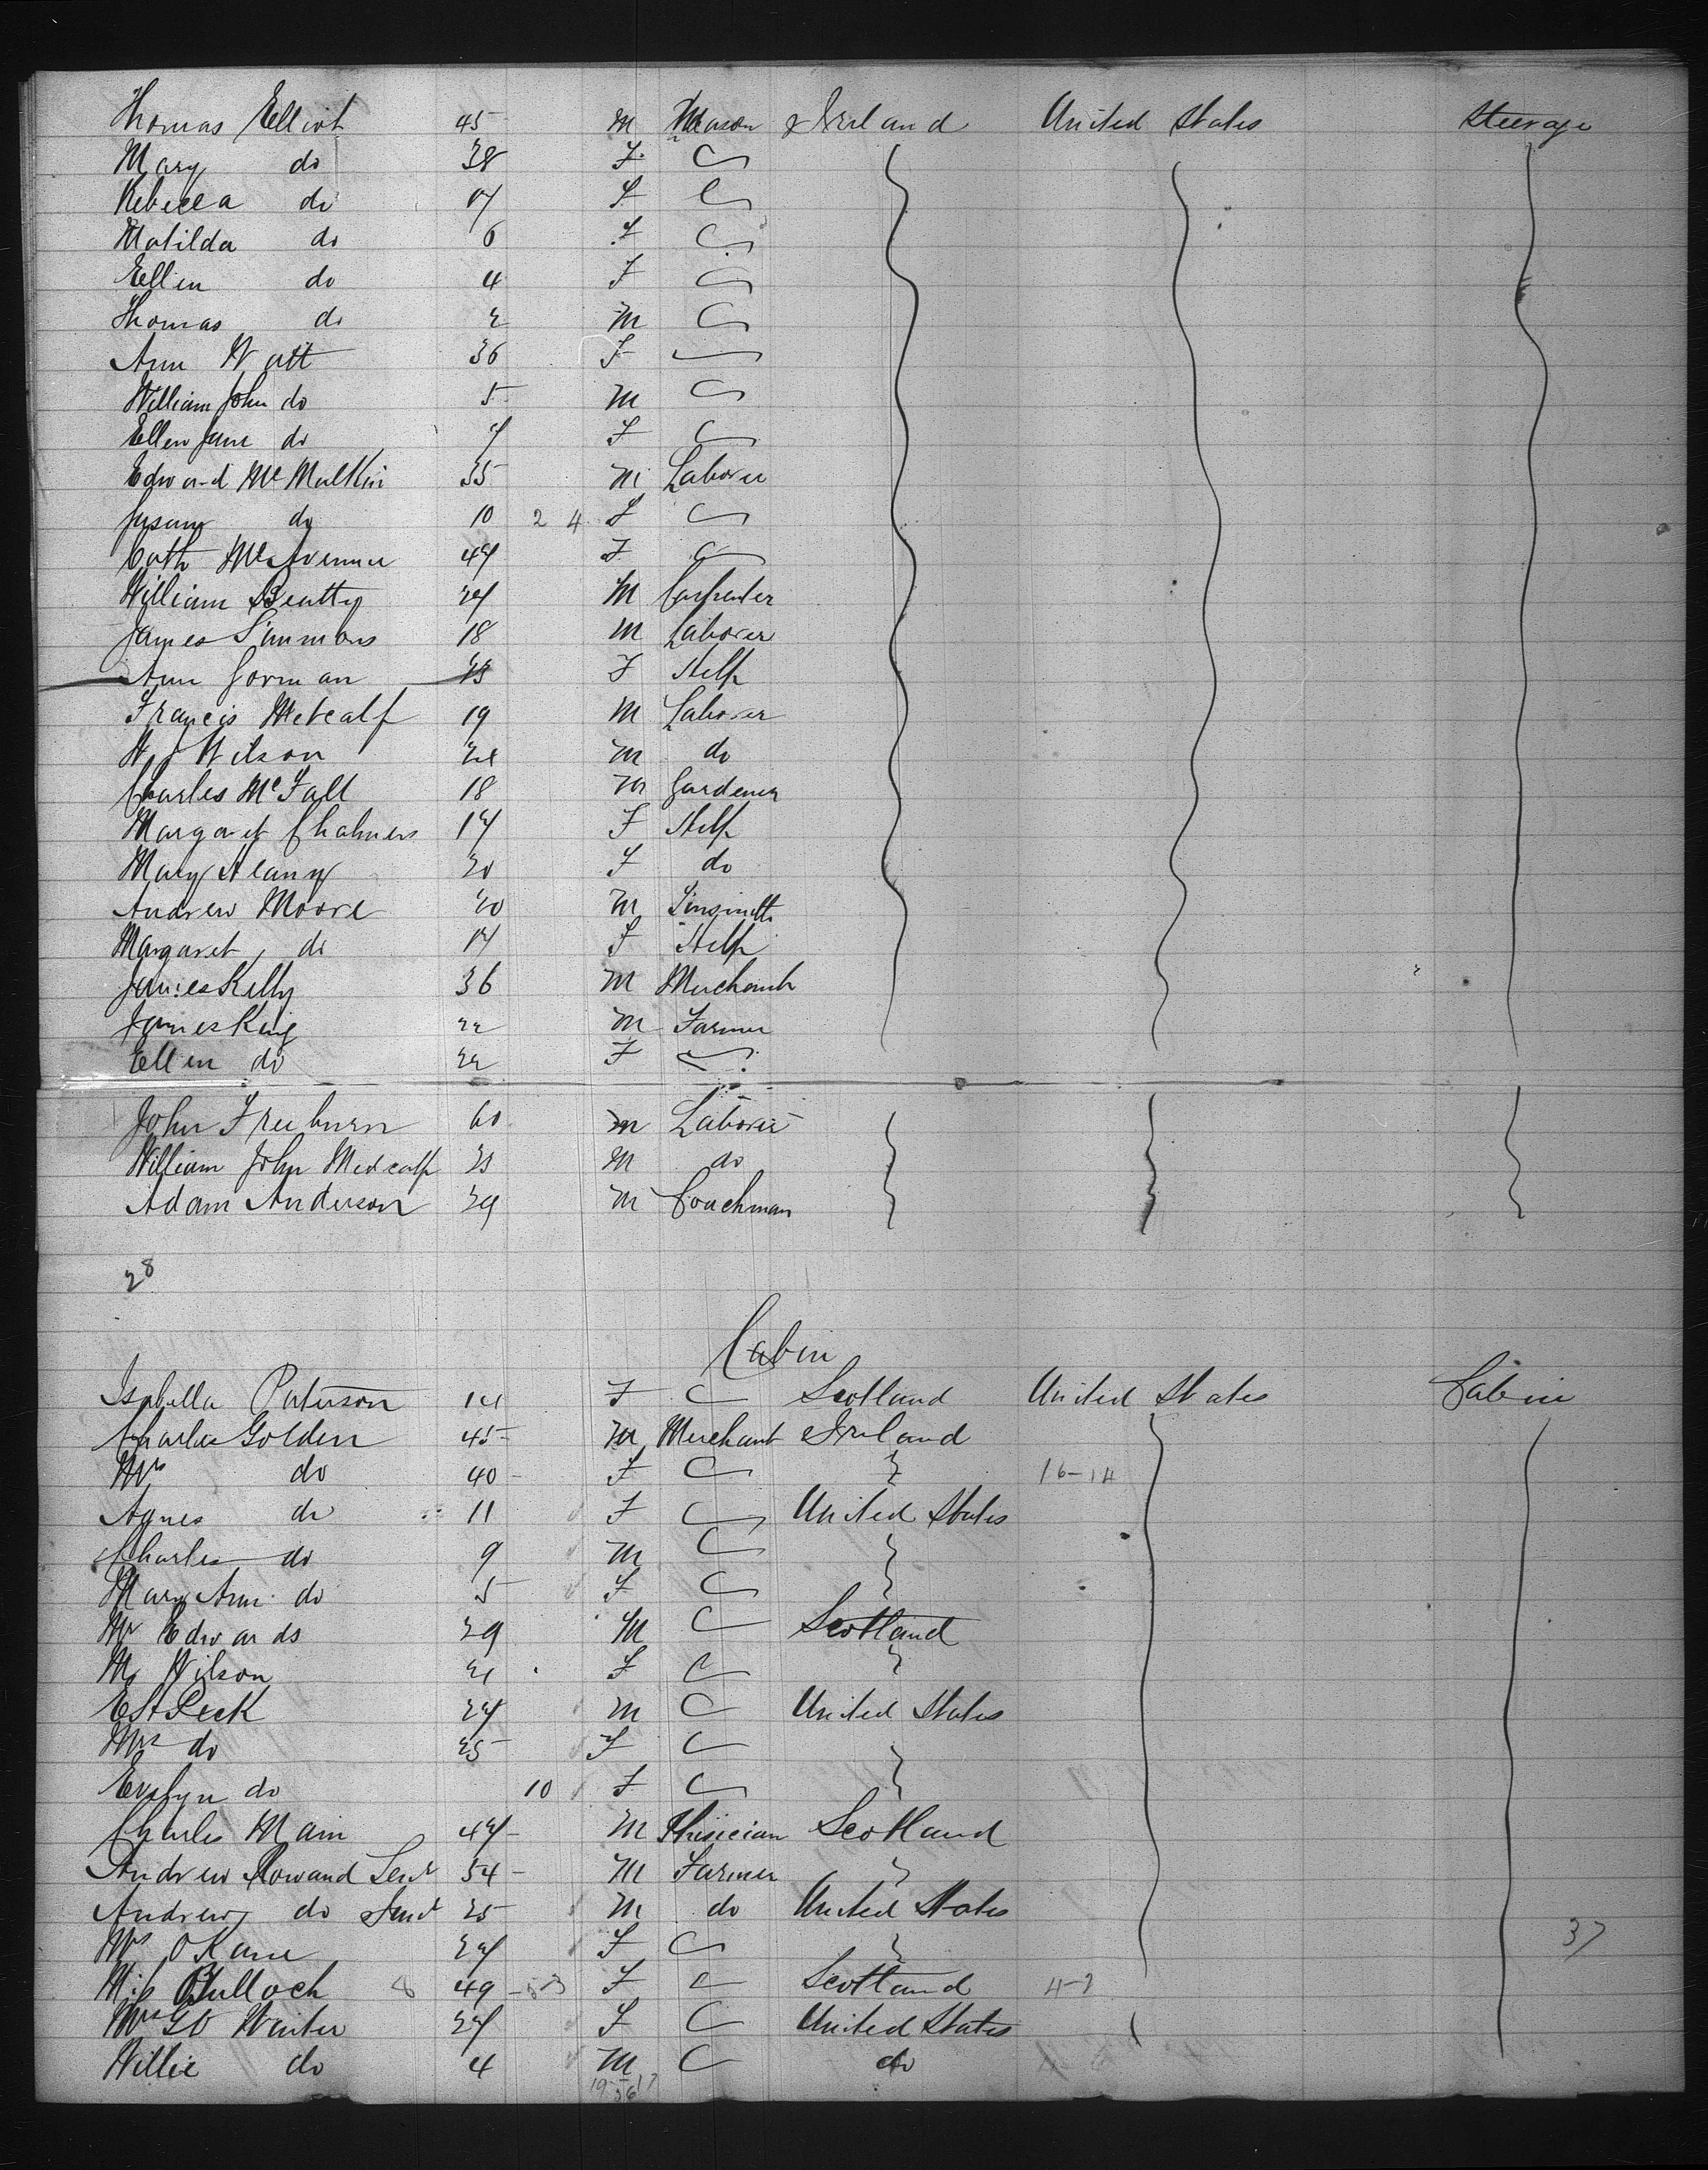 Thomas Elliott 45 M Mason Ireland United States Steerage
Mary do 38 F
Rebecca do F
Matilda do 6 F
Ellen do 4 F
Thomas do 2 M
Ann Watt 36 F
William John do 5 M
Ellen Jane do F
Edward McMulkin 35 M Laborer
do 10 2 4 F
Cath 44 F
William Beatty 24 M Carpenter
James Simmons 18 M Laborer
Ann Gorman F Help
Francis Metcalf 19 M Laborer
Wilson M do
Charles McFall 18 M Gardener
Margaret Chalmers 17 F Help
Mary 20 F do
Andrew Moore 40 M Tinsmith
Margaret do 17 F Help
James Kelly 36 M Merchant
James King 22 M Farmer
Ellen do 22 F
John Freeburn 60 M Laborer
William John Metcalf M do
Adam Anderson 29 M Coachman
28
Cabin
Isabella Paterson 14 F Scotland United States Cabin
Charles Golden 45 M Merchant Ireland
Mrs do 40 F 16-14
Agnes do 11 F United States
Charles do 9 M
Mary Ann do 5 F
Mr Edwards 29 M Scotland
Wilson 21 F
Peck 24 M United States
Mrs do 25 F
Evelyn do 10 F
Charles Main 44 M Phisician Scotland
Andrew Rowand Senr 54 M Farmer
Andrew do Junr 25 M do United States
Mrs OKane 24 F 37
Miss Bulloch 49 F Scotland
Mrs Winter 24 F United States
Willie do 4 M do